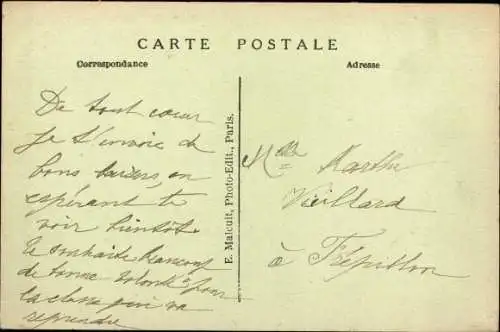 CARTE POSTALE
Correspondance
Adresse
De tout cœur
je t'envoie de
bons baisers, en
espérant te
voir bientôt.
Je souhaite beaucoup
de bonne volonté pour
la classe qui va
reprendre
E. Malcuit, Photo-Edit., Paris.
Melle Marthe
Vieillard
à Frépillon